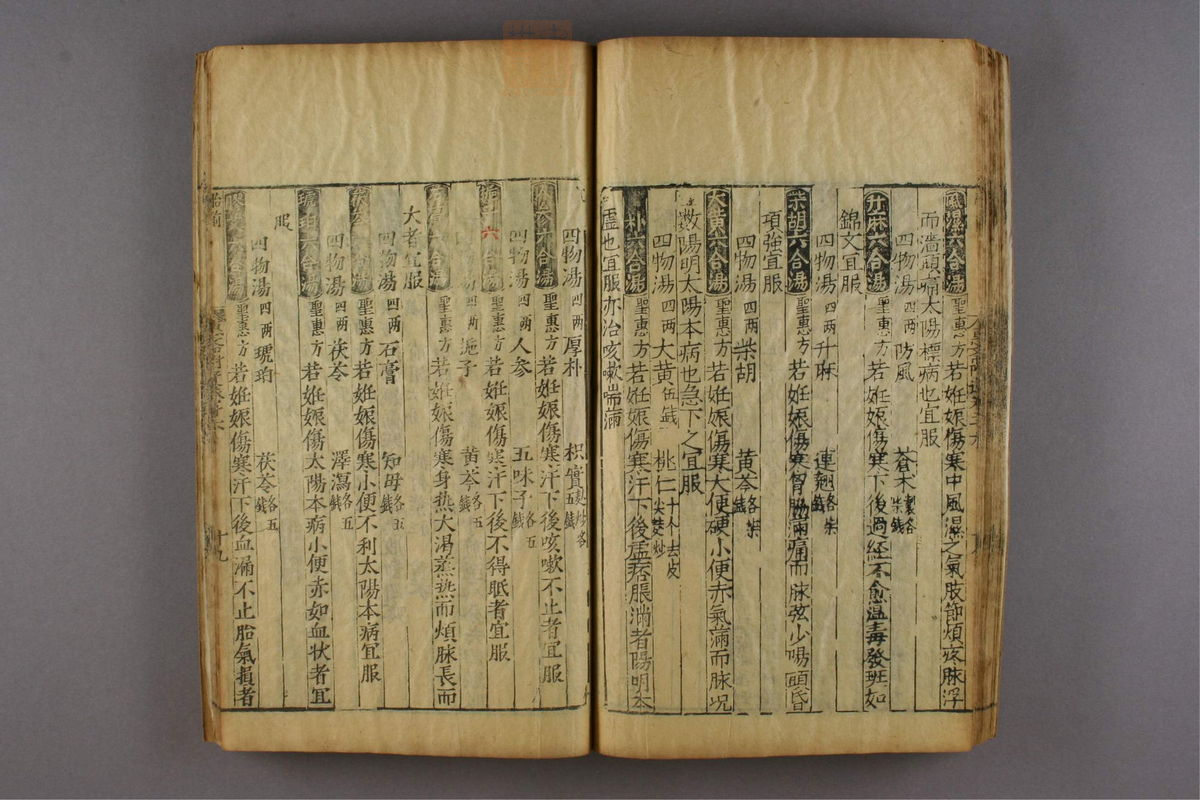 風濕六合湯聖惠方若姙娠傷寒中風濕之氣肢節煩疼脉浮
而濇頭痛太陽標病也宜服
四物湯四两防風 蒼术製各柒錢
升麻六合湯聖惠方若姙娠傷寒下後過經不愈温毒發班如
錦文宜服
四物湯四两升麻 連翹各柒錢
柴胡六合湯聖惠方若姙娠傷寒胷脇滿痛而脉弦少陽頭昏
項強宜服
四物湯四两柴胡 黄芩各柒錢
大黄六合湯聖惠方若姙娠傷寒大便硬小便赤氣滿而脉沉
數陽明太陽本病也急下之宜服
四物湯四两大黄伍錢 桃仁十个去皮尖麸炒
朴六合湯聖惠方若姙娠傷寒汗下後虚痞脹滿者陽明本
虚也宜服亦治咳嗽喘滿
四物湯四两厚朴 枳實麸炒各五錢
六合湯聖惠方若姙娠傷寒汗下後咳嗽不止者宜服
四物湯四两人參 五味子各五錢
六合湯聖惠方若姙娠傷寒汗下後不得眠者宜服
四物湯四两梔子 黄芩各五錢
石膏六合湯聖惠方若姙娠傷寒身熱大渴蒸熱而煩脉長而
大者宜服
四物湯四两石膏 知母各五錢
茯苓六合湯聖惠方若姙娠傷寒小便不利太陽本病宜服
四物湯四两茯苓 澤瀉各五錢
琥珀六合湯聖惠方若姙娠傷太陽本病小便赤如血状者宜
服
四物湯四两琥珀 茯苓各五錢
六合湯聖惠方若姙娠傷寒汗下後血漏不止胎氣損者
胎前
十九